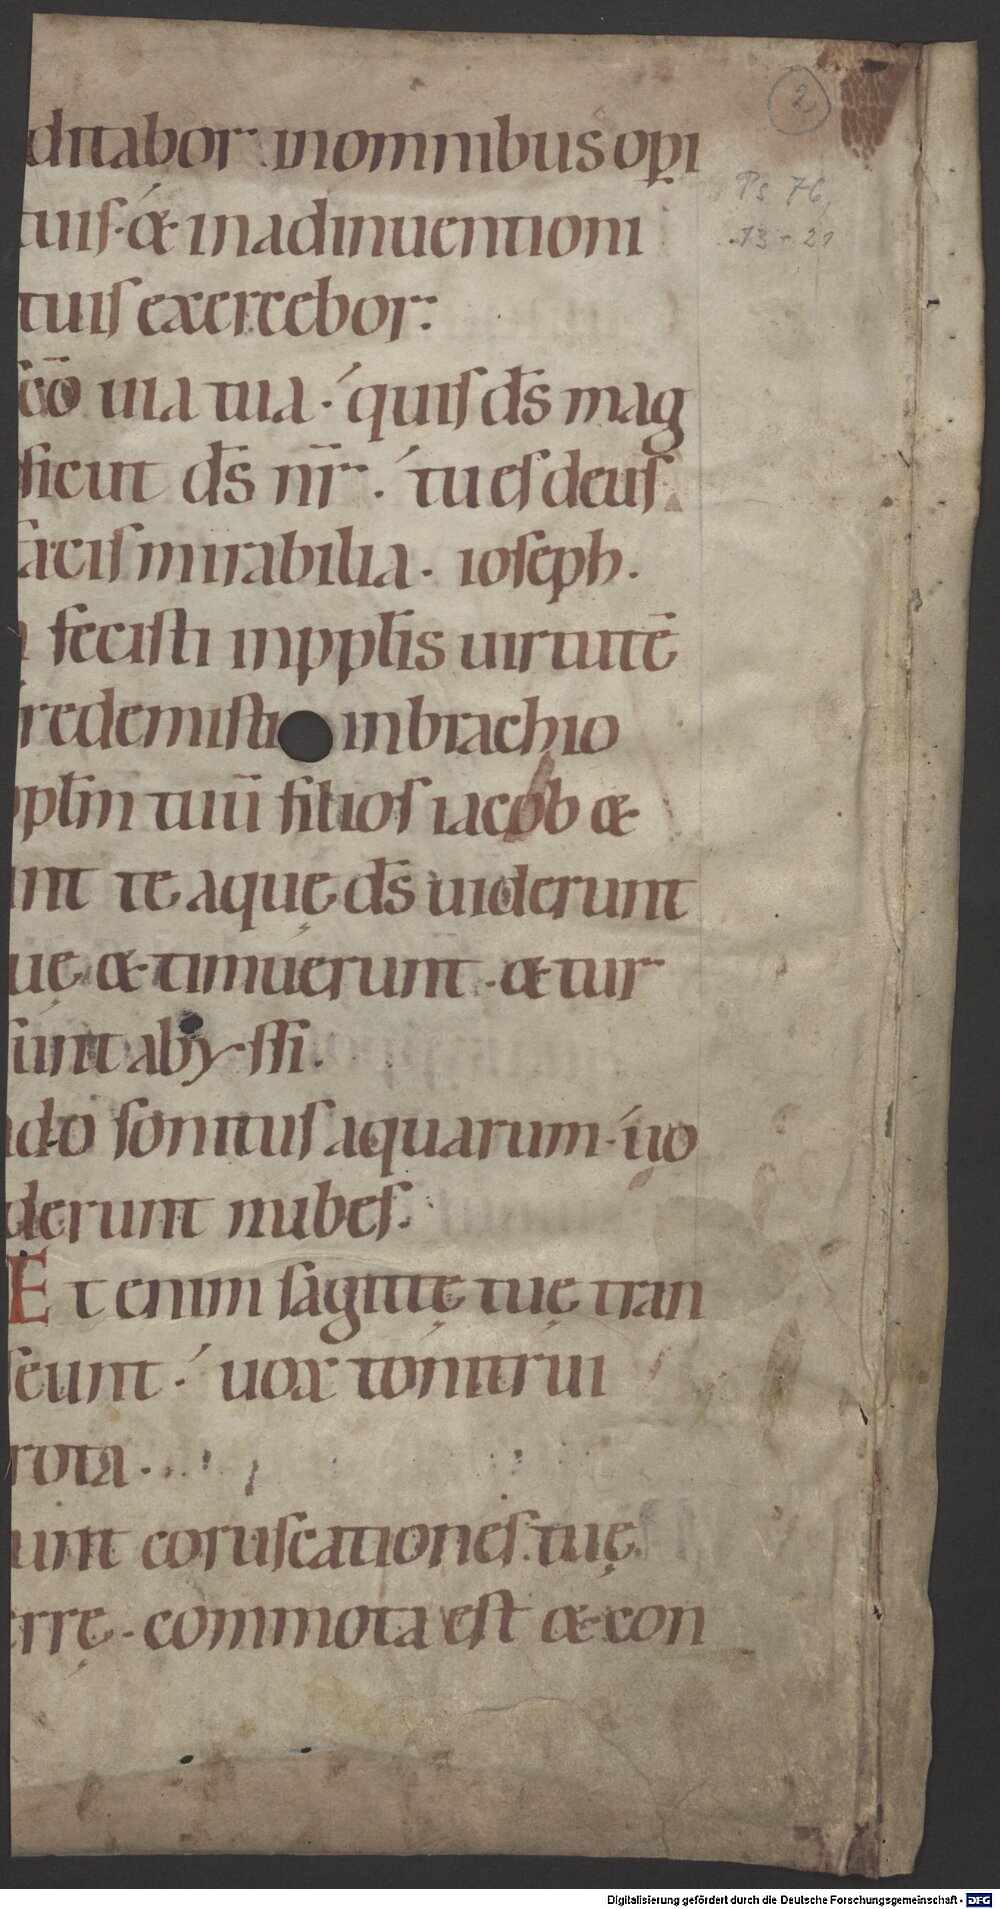 2
Ps 76,
13 - 21
ditabor inomnibus opi
tuis · & in adinuentioni
tuis exercebor ·
sc̄o uia tua · quis d̄s mag
sicut d̄s nr̄ · tu es deus
facis mirabilia · ioseph ·
fecisti inpplīs uirtutē
redemisti inbrachio
pplm̄ tuū filios iacob &
unt te aquę d̄s uiderunt
uę & timuerunt · & tur
sunt abyssi ·
do sonitus aquarum · uo
derunt nubes ·
Et enim sagittę tuę tran
seunt · uox tonitrui
rota ·
unt coruscationes tuę
errę · commota est & con
Digitalisierung gefördert durch die Deutsche Forschungsgemeinschaft - DFG